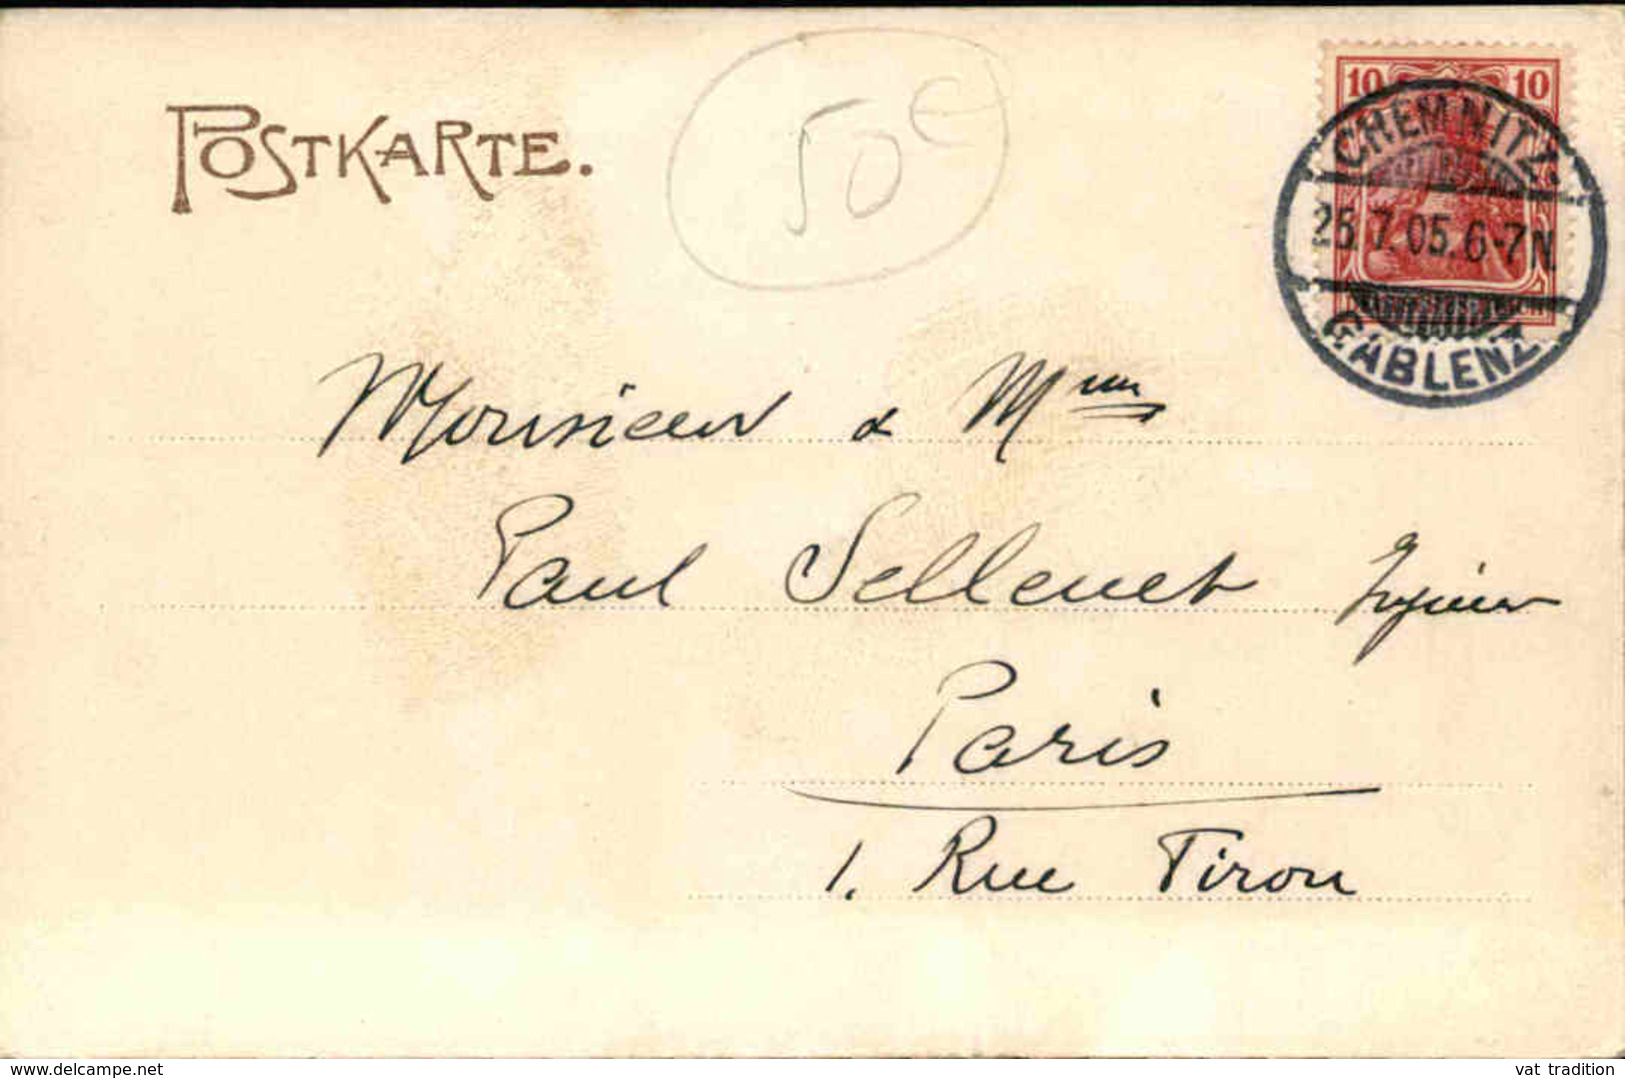 POSTKARTE.
50 e
10 10
CHEMNITZ
25.7.05.6-7N.
GABLENZ
Monsieur & Mme
Paul Sellenet
Paris
1. Rue Tiron
delcampe.net
vat_tradition